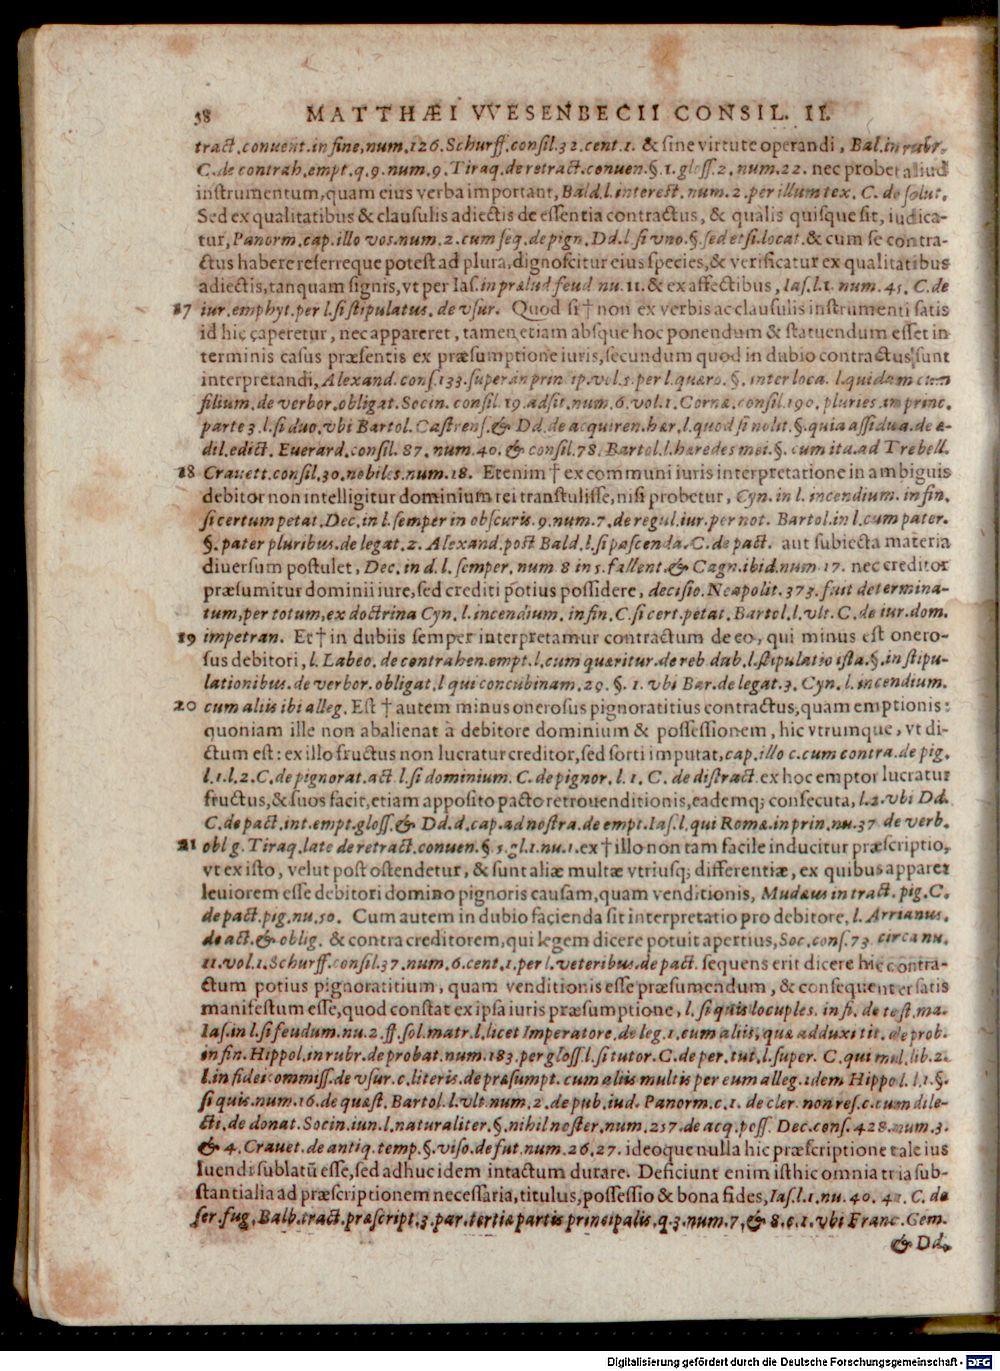 38 MATTHÆI VVESENBECII CONSIL. II.
tract. conuent. in fine, num. 126. Schurff. consil. 32. cent. 1. & sine virtute operandi, Bal. in rubr.
C. de contrah. empt. q. 9. num. 9. Tiraq. de retract. conuen. §. 1. gloss. 2. num. 22. nec probet aliud
instrumentum, quam eius verba important, Bald. l. interest. num. 2. per illum tex. C. de solut.
Sed ex qualitatibus & clausulis adiectis de essentia contractus, & qualis quisque sit, iudica-
tur, Panorm. cap. illo vos. num. 2. cum seq. de pign. Dd. l. si vno. §. sed et si. locat. & cum se contra-
ctus habere referreque potest ad plura, dignoscitur eius species, & verificatur ex qualitatibus
adiectis, tanquam signis, vt per Ias. in prælud feud nu. 11. & ex affectibus, Ias. l. 1. num. 45. C. de
17 iur. emphyt. per l. si stipulatus. de vsur. Quod si † non ex verbis ac clausulis instrumenti satis
id hic caperetur, nec appareret, tamen etiam absque hoc ponendum & statuendum esset in
terminis casus præsentis ex præsumptione iuris, secundum quod in dubio contractus sunt
interpretandi, Alexand. cons. 133. super in prin ip. vol. 5. per l. quæro. §. inter loca. l. quidam cum
filium. de verbor. obligat. Socin. consil. 19. adsit. num. 6. vol. 1. Cornæ. consil. 190. pluries. in princ.
parte 3. l. si duo. vbi Bartol. Castrens. & Dd. de acquiren. hær. l. quod si nolit. §. quia assidua. de æ-
dil. edict. Euerard. consil. 87. num. 40. & consil. 78. Bartol. l. hæredes mei. §. cum ita. ad Trebell.
18 Crauett. consil. 30. nobiles. num. 18. Etenim † ex communi iuris interpretatione in ambiguis
debitor non intelligitur dominium rei transtulisse, nisi probetur, Cyn. in l. incendium. in fin.
si certum petat. Dec. in l. semper in obscuris. 9. num. 7. de regul. iur. per not. Bartol. in l. cum pater.
§. pater pluribus. de legat. 2. Alexand. post Bald. l. si pascenda. C. de pact. aut subiecta materia
diuersum postulet, Dec. in d. l. semper. num. 8 in 5. fallent. & Cagn. ibid. num. 17. nec creditor
præsumitur dominii iure, sed crediti potius possidere, decisio. Neapolit. 373. fuit determina-
tum, per totum, ex doctrina Cyn. l. incendium. in fin. C. si cert. petat. Bartol. l. vlt. C. de iur. dom.
19 impetran. Et † in dubiis semper interpretamur contractum de eo, qui minus est onero-
sus debitori, l. Labeo. de contrahen. empt. l. cum quæritur. de reb. dub. l. stipulatio ista. §. in stipu-
lationibus. de verbor. obligat. l qui concubinam. 29. §. 1. vbi Bar. de legat. 3. Cyn. l. incendium.
20 cum aliis ibi alleg. Est † autem minus onerosus pignoratitius contractus, quam emptionis:
quoniam ille non abalienat à debitore dominium & possessionem, hic vtrumque, vt di-
ctum est: ex illo fructus non lucratur creditor, sed sorti imputat, cap. illo c. cum contra. de pig.
l. 1. l. 2. C. de pignorat. act. l. si dominium. C. de pignor. l. 1. C. de distract. ex hoc emptor lucratur
fructus, & suos facit, etiam apposito pacto retrouenditionis, eademq; consecuta, l. 2. vbi Dd.
C. de pact. int. empt. gloss. & Dd. d. cap. ad nostra. de empt. Ias. l. qui Romæ. in prin. nu. 37 de verb.
21 obl g. Tiraq. late de retract. conuen. §. 5. gl. 1. nu. 1. ex † illo non tam facile inducitur præscriptio,
vt ex isto, velut post ostendetur, & sunt aliæ multæ vtriusq; differentiæ, ex quibus apparet
leuiorem esse debitori domino pignoris causam, quam venditionis, Mudæus in tract. pig. C.
de pact. pig. nu. 50. Cum autem in dubio facienda sit interpretatio pro debitore, l. Arrianus.
de act. & oblig. & contra creditorem, qui legem dicere potuit apertius, Soc. cons. 73. circa nu.
11. vol. 1. Schurff. consil. 37. num. 6. cent. 1. per l. veteribus. de pact. sequens erit dicere hic contra-
ctum potius pignoratitium, quam venditionis esse præsumendum, & consequenter satis
manifestum esse, quod constat ex ipsa iuris præsumptione, l. si quis locuples. in fi. de test. ma.
Ias. in l. si feudum. nu. 2. ff. sol. matr. l. licet Imperatore. de leg. 1. cum aliis, quæ adduxi tit. de prob.
in fin. Hippol. in rubr. de probat. num. 183. per gloss. l. si tutor. C. de per. tut. l. super. C. qui mil. lib. 2.
l. in fidei commiss. de vsur. c. literis. de præsumpt. cum aliis multis per eum alleg. idem Hippol. l. 1. §.
si quis. num. 16. de quæst. Bartol. l. vlt. num. 2. de pub. iud. Panorm. c. 1. de cler. non res. c. cum dile-
cti, de donat. Socin. iun. l. naturaliter. §. nihil noster, num. 257. de acq. poss. Dec. cons. 428. num. 3.
& 4. Crauet. de antiq. temp. §. viso. de fut. num. 26. 27. ideoque nulla hic præscriptione tale ius
luendi sublatū esse, sed adhuc idem intactum durare. Deficiunt enim isthic omnia tria sub-
stantialia ad præscriptionem necessaria, titulus, possessio & bona fides, Ias. l. 1. nu. 40. 41. C. de
ser. fug. Balb. tract. præscript. 3. par. tertiæ partis principalis. q. 3. num. 7. & 8. c. 1. vbi Franc. Gem.
& Dd.
Digitalisierung gefördert durch die Deutsche Forschungsgemeinschaft - DFG